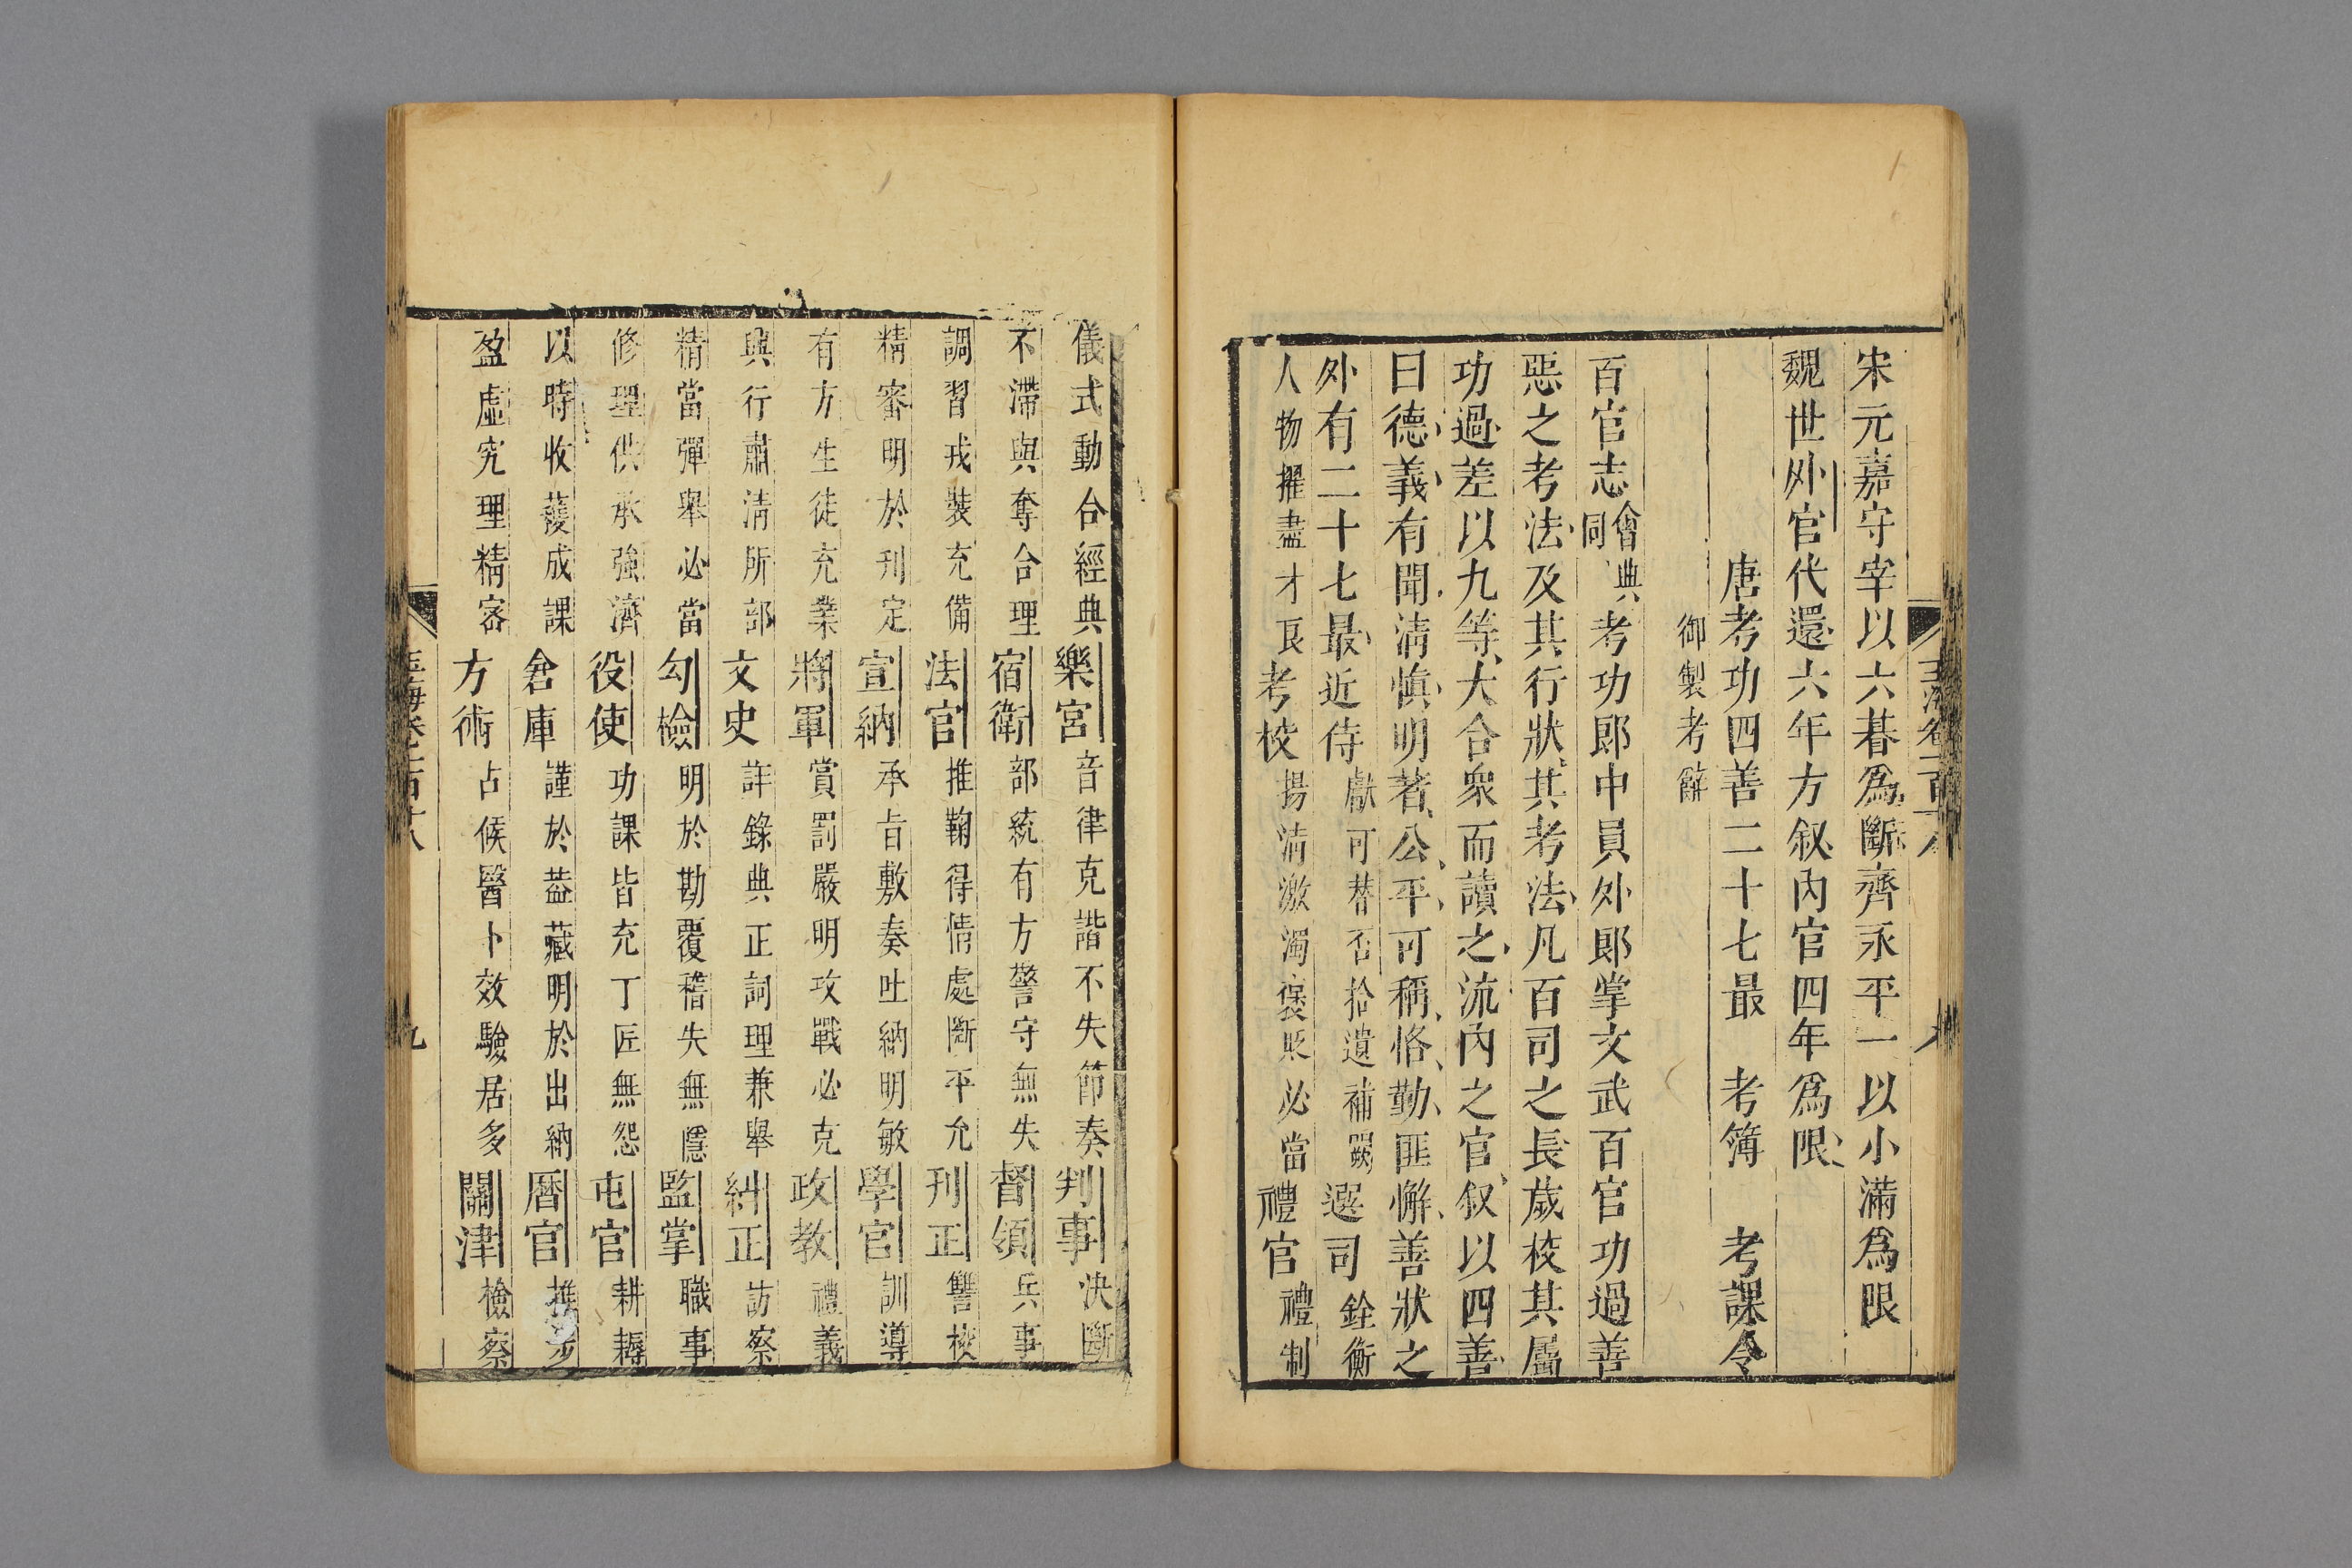 宋元嘉守宰以六朞爲斷齊永平一以小滿爲限
魏世外官代還六年方叙內官四年爲限
唐考功四善二十七最　考簿　考課令
御製考辭
百官志會典同考功郎中員外郎掌文武百官功過善
惡之考法及其行狀其考法凡百司之長歲校其屬
功過差以九等大合衆而讀之流內之官叙以四善
曰德義有聞清慎明著公平可稱恪勤匪懈善狀之
外有二十七最近侍獻可替否拾遺補闕選司銓衡
人物擢盡才良考校揚清激濁褒貶必當禮官禮制
儀式動合經典樂官音律克諧不失節奏判事決斷
不滯與奪合理宿衛部統有方警守無失督領兵事
調習戎裝充備法官推鞫得情處斷平允刊正讐校
精審明於刊定宣納承旨敷奏吐納明敏學官訓導
有方生徒充業將軍賞罰嚴明攻戰必克政教禮義
興行肅清所部文史詳錄典正詞理兼舉糾正訪察
精當彈舉必當勾檢明於勘覆稽失無隱監掌職事
修理供承強濟役使功課皆充丁匠無怨屯官耕耨
以時收穫成課倉庫謹於蓋藏明於出納曆官推步
盈虛究理精密方術占候醫卜效驗居多關津檢察
玉海卷一百十八
九